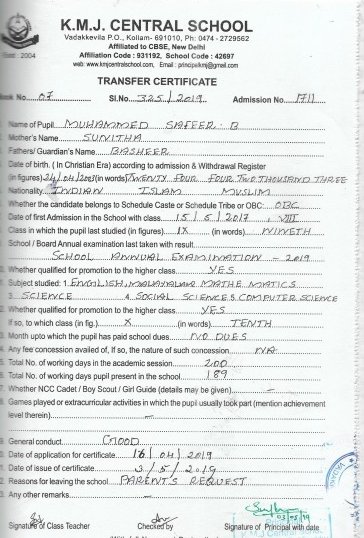 K.M.J. CENTRAL SCHOOL
Vadakkevila P.O., Kollam- 691010, Ph: 0474 - 2729562
Affiliated to CBSE, New Delhi
Affiliation Code : 931192, School Code : 42697
web: www.kmjcentralschool.com, Email : principalkmj@gmail.com
Estd : 2004
TRANSFER CERTIFICATE
Book No. 07 Sl.No. 325/2019 Admission No. 1711
Name of Pupil MUHAMMED SAFEER. B
Mother's Name SUNITHA
Fathers/ Guardian's Name BASHEER
Date of birth. ( In Christian Era) according to admission & Withdrawal Register
(in figures) 24/04/2003 (in words) TWENTY FOUR FOUR TWO THOUSAND THREE
Nationality INDIAN ISLAM MUSLIM
Whether the candidate belongs to Schedule Caste or Schedule Tribe or OBC: OBC
Date of first Admission in the School with class. 15/6/2017, VIII
Class in which the pupil last studied (in figures) IX (in words) NINETH
School / Board Annual examination last taken with result
SCHOOL ANNUAL EXAMINATION - 2019
Whether qualified for promotion to the higher class. YES
Subject studied: 1. ENGLISH, MALAYALAM MATHEMATICS
3 SCIENCE 4. SOCIAL SCIENCE 5. COMPUTER SCIENCE
2. Whether qualified for promotion to the higher class YES
If so, to which class (in fig.) X (in words) TENTH
3. Month upto which the pupil has paid school dues NO DUES
4. Any fee concession availed of, If so, the nature of such concession NA
5. Total No. of working days in the academic session 200
6. Total No. of working days pupil present in the school 189
7. Whether NCC Cadet / Boy Scout / Girl Guide (details may be given) -
8. Games played or extracurricular activities in which the pupil usually took part (mention achievement
level therein) -
9. General conduct GOOD
0. Date of application for certificate 16/04/2019
1. Date of issue of certificate 3/5/2019
2. Reasons for leaving the school PARENT'S REQUEST
3. Any other remarks -
03/05/19
Signature of Class Teacher Checked by Signature of Principal with date